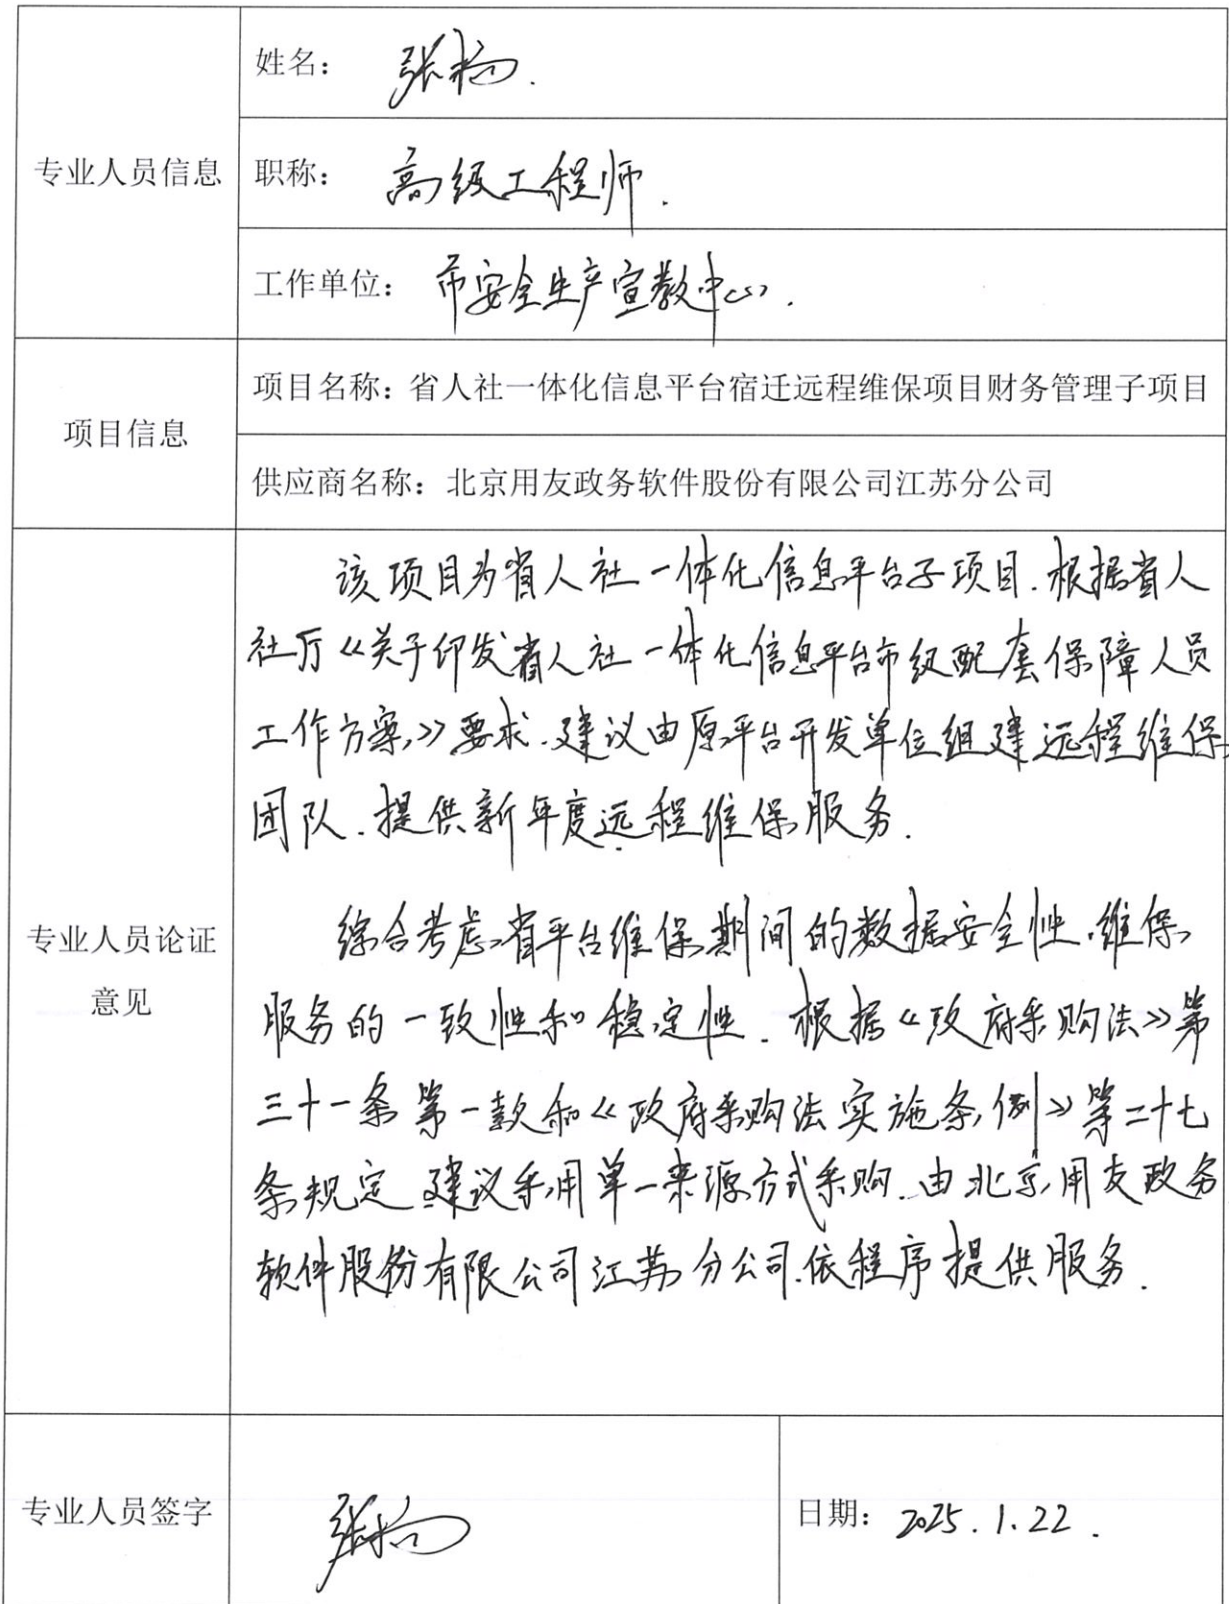 姓名：张杨.
专业人员信息
职称：高级工程师.
工作单位：市安全生产宣教中心.
项目信息
项目名称：省人社一体化信息平台宿迁远程维保项目财务管理子项目
供应商名称：北京用友政务软件股份有限公司江苏分公司
专业人员论证
意见
该项目为省人社一体化信息平台子项目.根据省人
社厅《关于印发省人社一体化信息平台市级配套保障人员
工作方案》要求.建议由原平台开发单位组建远程维保
团队.提供新年度远程维保服务.
综合考虑省平台维保期间的数据安全性.维保
服务的一致性和稳定性.根据《政府采购法》第
三十一条第一款和《政府采购法实施条例》第二十七
条规定.建议采用单一来源方式采购.由北京用友政务
软件股份有限公司江苏分公司.依程序提供服务.
专业人员签字
张杨
日期：2025.1.22.